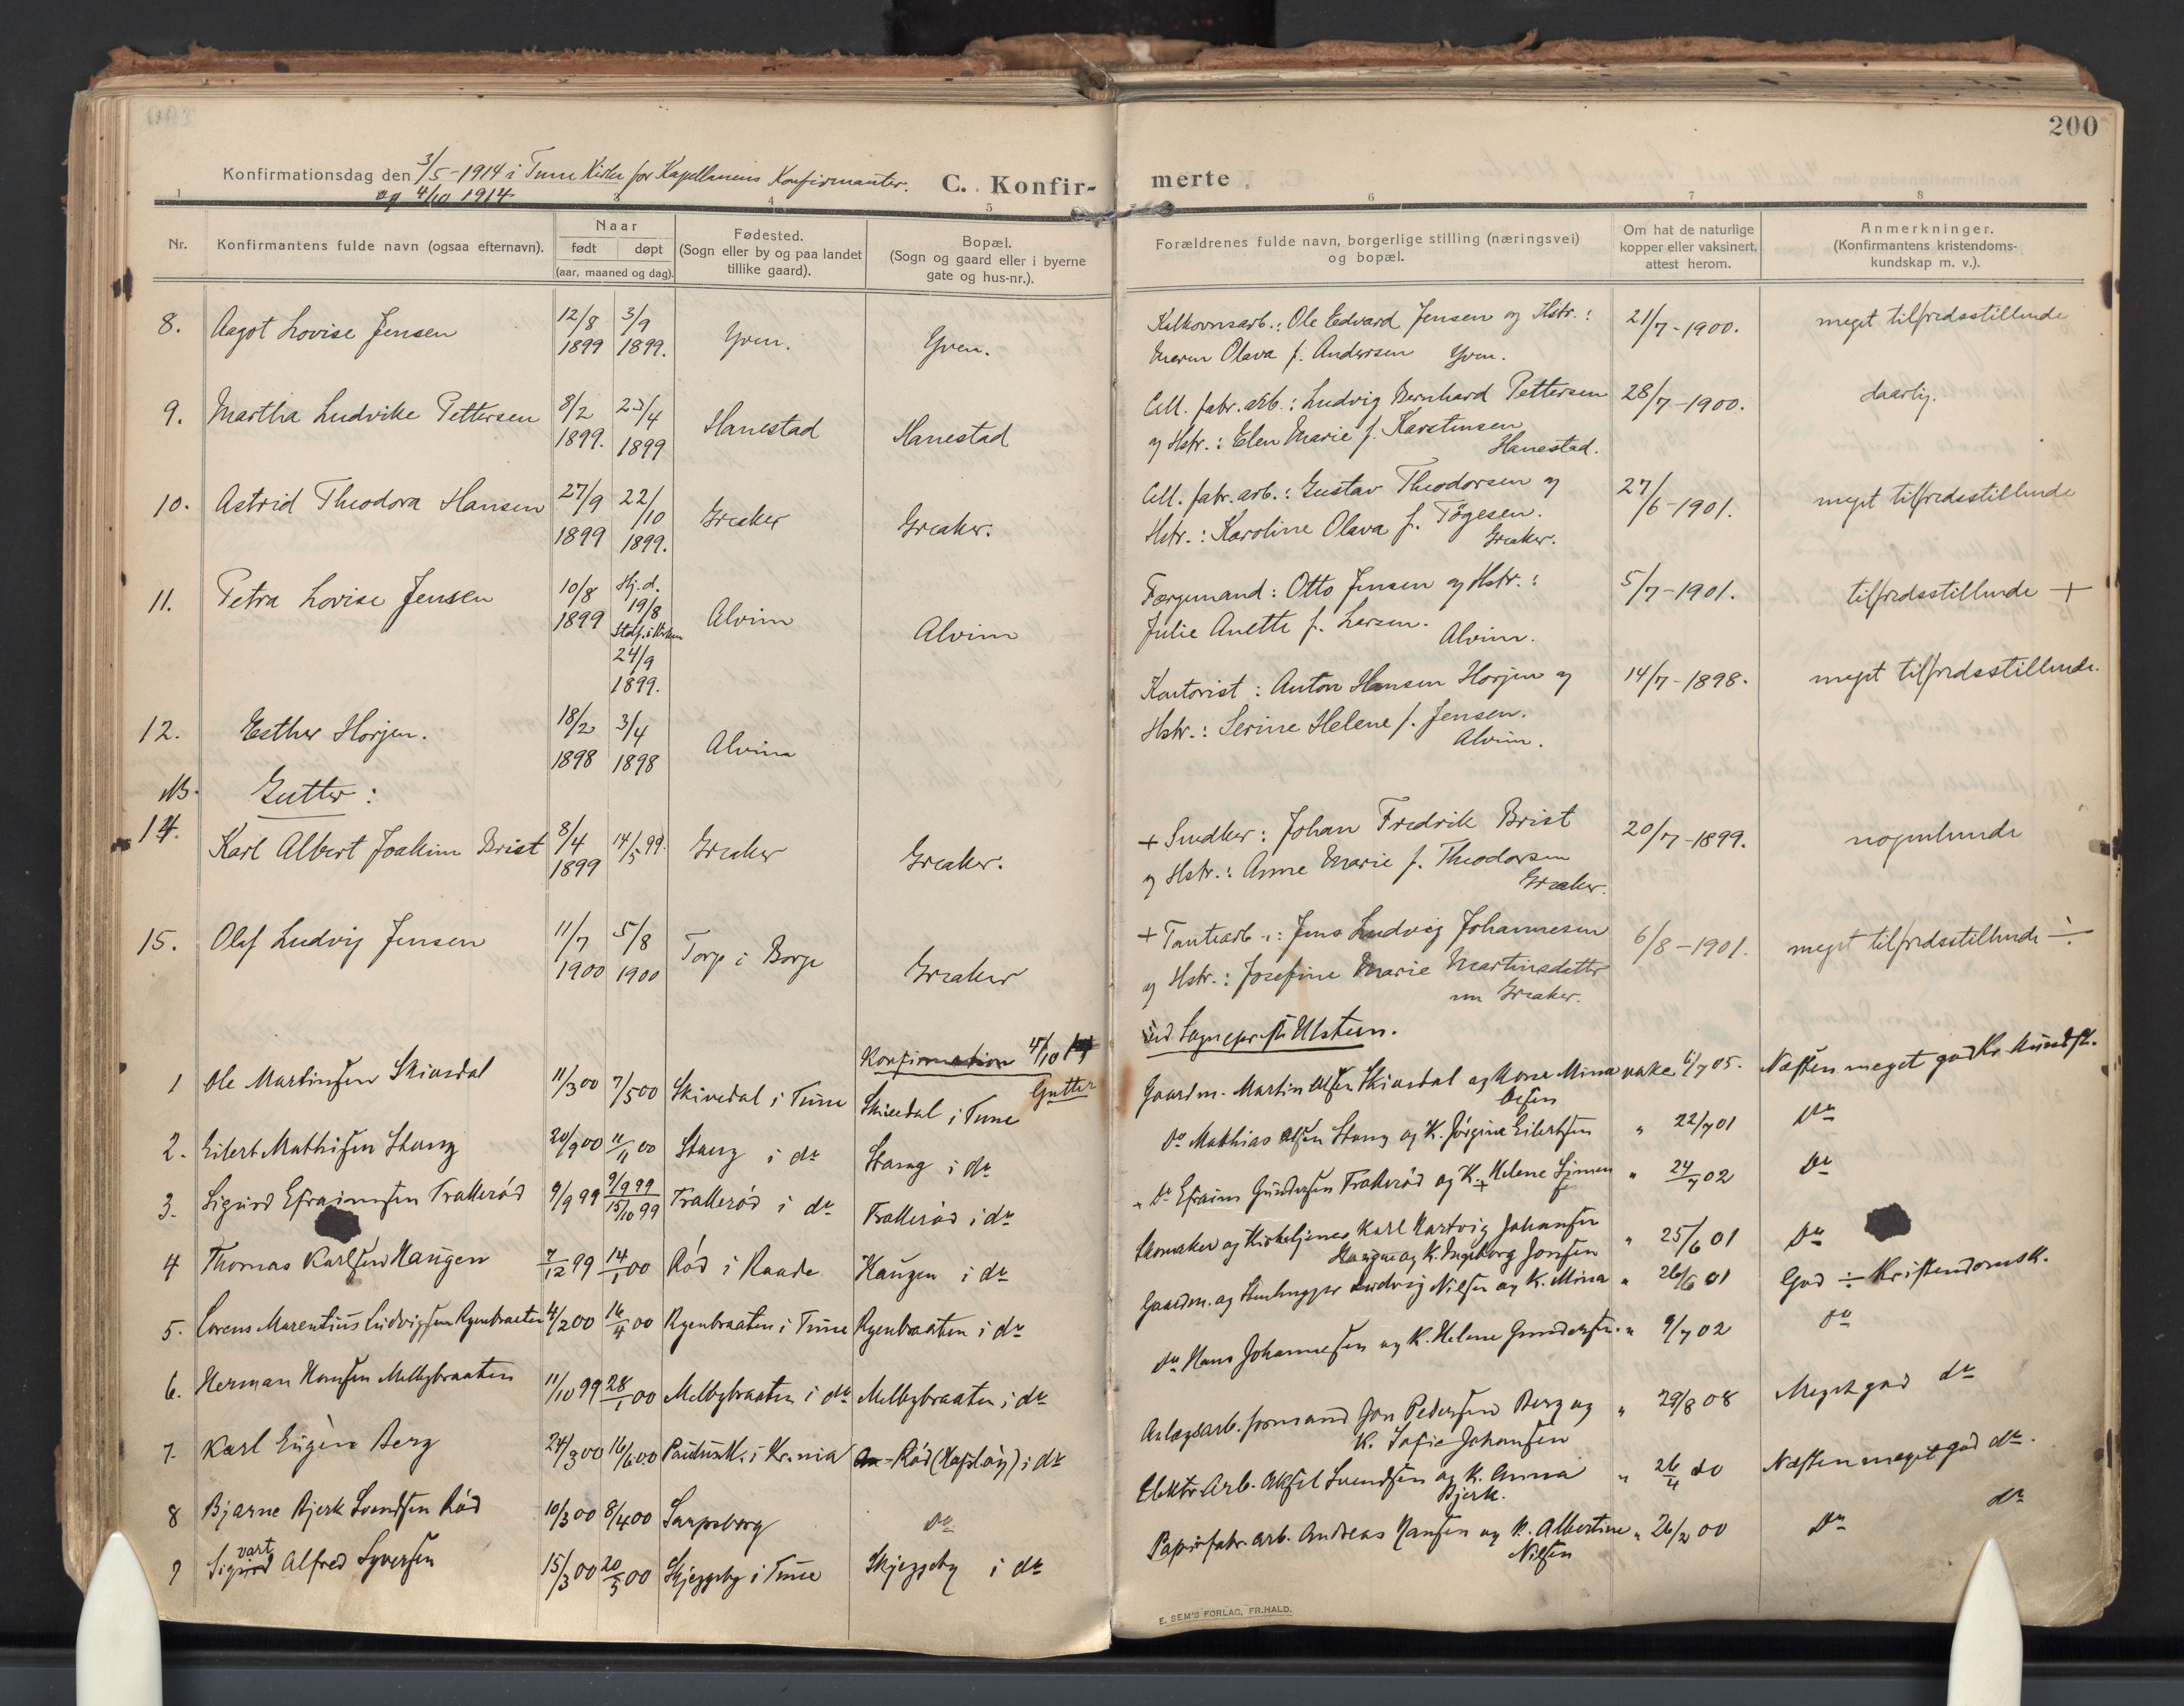 200
Konfirmationsdag den 3/5-1914 i Tune Kirke for Kapellanens Konfirmanter.
og 4/10 1914
C. Konfir-
merte
1 3 4 5 6 7 8
Nr.
Konfirmantens fulde navn (ogsaa efternavn).
Naar
født
døpt
(aar, maaned og dag).
Fødested.
(Sogn eller by og paa landet
tillike gaard).
Bopæl.
(Sogn og gaard eller i byerne
gate og hus-nr.).
Forældrenes fulde navn, borgerlige stilling (næringsvei)
og bopæl.
Om hat de naturlige
kopper eller vaksinert,
attest herom.
Anmerkninger.
(Konfirmantens kristendoms-
kundskap m. v.).
8. Aagot Lovise Jensen 12/8 1899 3/9 1899. Yven. Yven.
Kalkovnsarb.: Ole Edvard Jensen og Hstr.: 21/7-1900. meget tilfredsstillende
Maren Olava f. Andersen Yven.
9. Martha Ludvike Pettersen 8/2 1899. 23/4 1899 Hanestad Hanestad
Cell. fabr. arb.: Ludvig Bernhard Pettersen 28/7-1900. daarlig.
og Hstr.: Elen Marie f. Karstensen
Hanestad.
10. Astrid Theodora Hansen 27/9 1899 22/10 1899. Greaker Greaker.
Cell. fabr. arb.: Gustav Theodorsen og 27/6-1901. meget tilfredsstillende
Hstr.: Karoline Olava f. Tøgesen.
Greaker.
11. Petra Lovise Jensen 10/8 1899 Hj. d. 19/8 Stadf. i Kirken 24/9 1899. Alvim Alvim
Færgemand: Otto Jensen og Hstr.: 5/7-1901. tilfredsstillende +
Julie Anette f. Larsen.
Alvim.
12. Esther Horjen. 18/2 1898 3/4 1898 Alvim
Kontorist: Anton Hansen Horjen og 14/7-1898. meget tilfredsstillende.
Hstr.: Serine Helene f. Jensen.
Alvim.
Gutter:
14. Karl Albert Joakim Brist 8/4 1899 14/5 99. Greaker Greaker.
+ Snedker: Johan Fredrik Brist 20/7-1899. nogenlunde
og Hstr.: Anne Marie f. Theodorsen
Greaker.
15. Olaf Ludvig Jensen 11/7 1900 5/8 1900 Torp i Borge Greaker
+ Tomtearb.: Jens Ludvig Johannesen 6/8-1901. meget tilfredsstillende ÷
og Hstr.: Josefine Marie Martinsdatter
nu Greaker.
Konfirmation 4/10
ved Sogneprest Ulsteen.
Gutter
1 Ole Martinsen Skivedal 11/3 00 7/5 00 Skivedal i Tune Skivedal i Tune
Gaardm. Martin Olsen Skivedal og Kone Mina vakc. 6/7 05. Næsten meget god Kr. kundsk.
Olsen
2. Eilert Mathisen Stang 20/9 00 11/11 00 Stang i do Stang i do
Do Mathias Olsen Stang og K. Jørgine Eilertsen " 22/7 01 Do
3. Sigurd Efraimsen Trallerød 9/9 99 9/9 99 15/10 99 Trallerød i do Trallerød i do
+ Do Efraim Gundersen Trallerød og K. + Helene Simen " 24/7 02 Do
sen
4 Thomas Karlsen Haugen 7/12 99 14/1 00 Rød i Raade Haugen i do
Skomaker og Kirketjener Karl Hartvig Johansen " 25/6 01 Do
Haugen og K. Ingeborg Jonsen
5. Lorens Marentius Ludvigsen Ryenbraaten 4/2 00 16/4 00 Ryenbraaten i Tune Ryenbraaten i do
Gaardm. og Stenhugger Ludvig Nilsen og K. Mina " 26/6 01 God ÷ Kristendomsk.
6. Herman Hansen Melbybraaten 11/10 99 28/1 00 Melbybraaten i do Melbybraaten i do
Do Hans Johannesen og K. Helene Gundersen " 9/7 02 Do
7. Karl Eugén Berg 24/3 00 16/6 00 i Kr.nia Rød (Hafsløy) i do
Anlægsarb. formand Jon Pedersen Berg og " 29/8 08 Meget god do
K. Sofie Johansen
8 Bjarne Bjerk Svendsen Rød 10/3 00 8/4 00 Sarpsborg Do
Elektr. Arb. Aksel Svendsen og K. Anna " 26/4 00 Næsten meget god do.
Bjerk.
9 Sigvart Alfred Syversen 15/3 00 20/5 00 Skjeggeby i Tune Skjeggeby i do
Papirfabr. arb. Andreas Hansen og K. Albertine " 26/2 00 Do do
Nilsen
E. SEM'S FORLAG, FR.HALD.